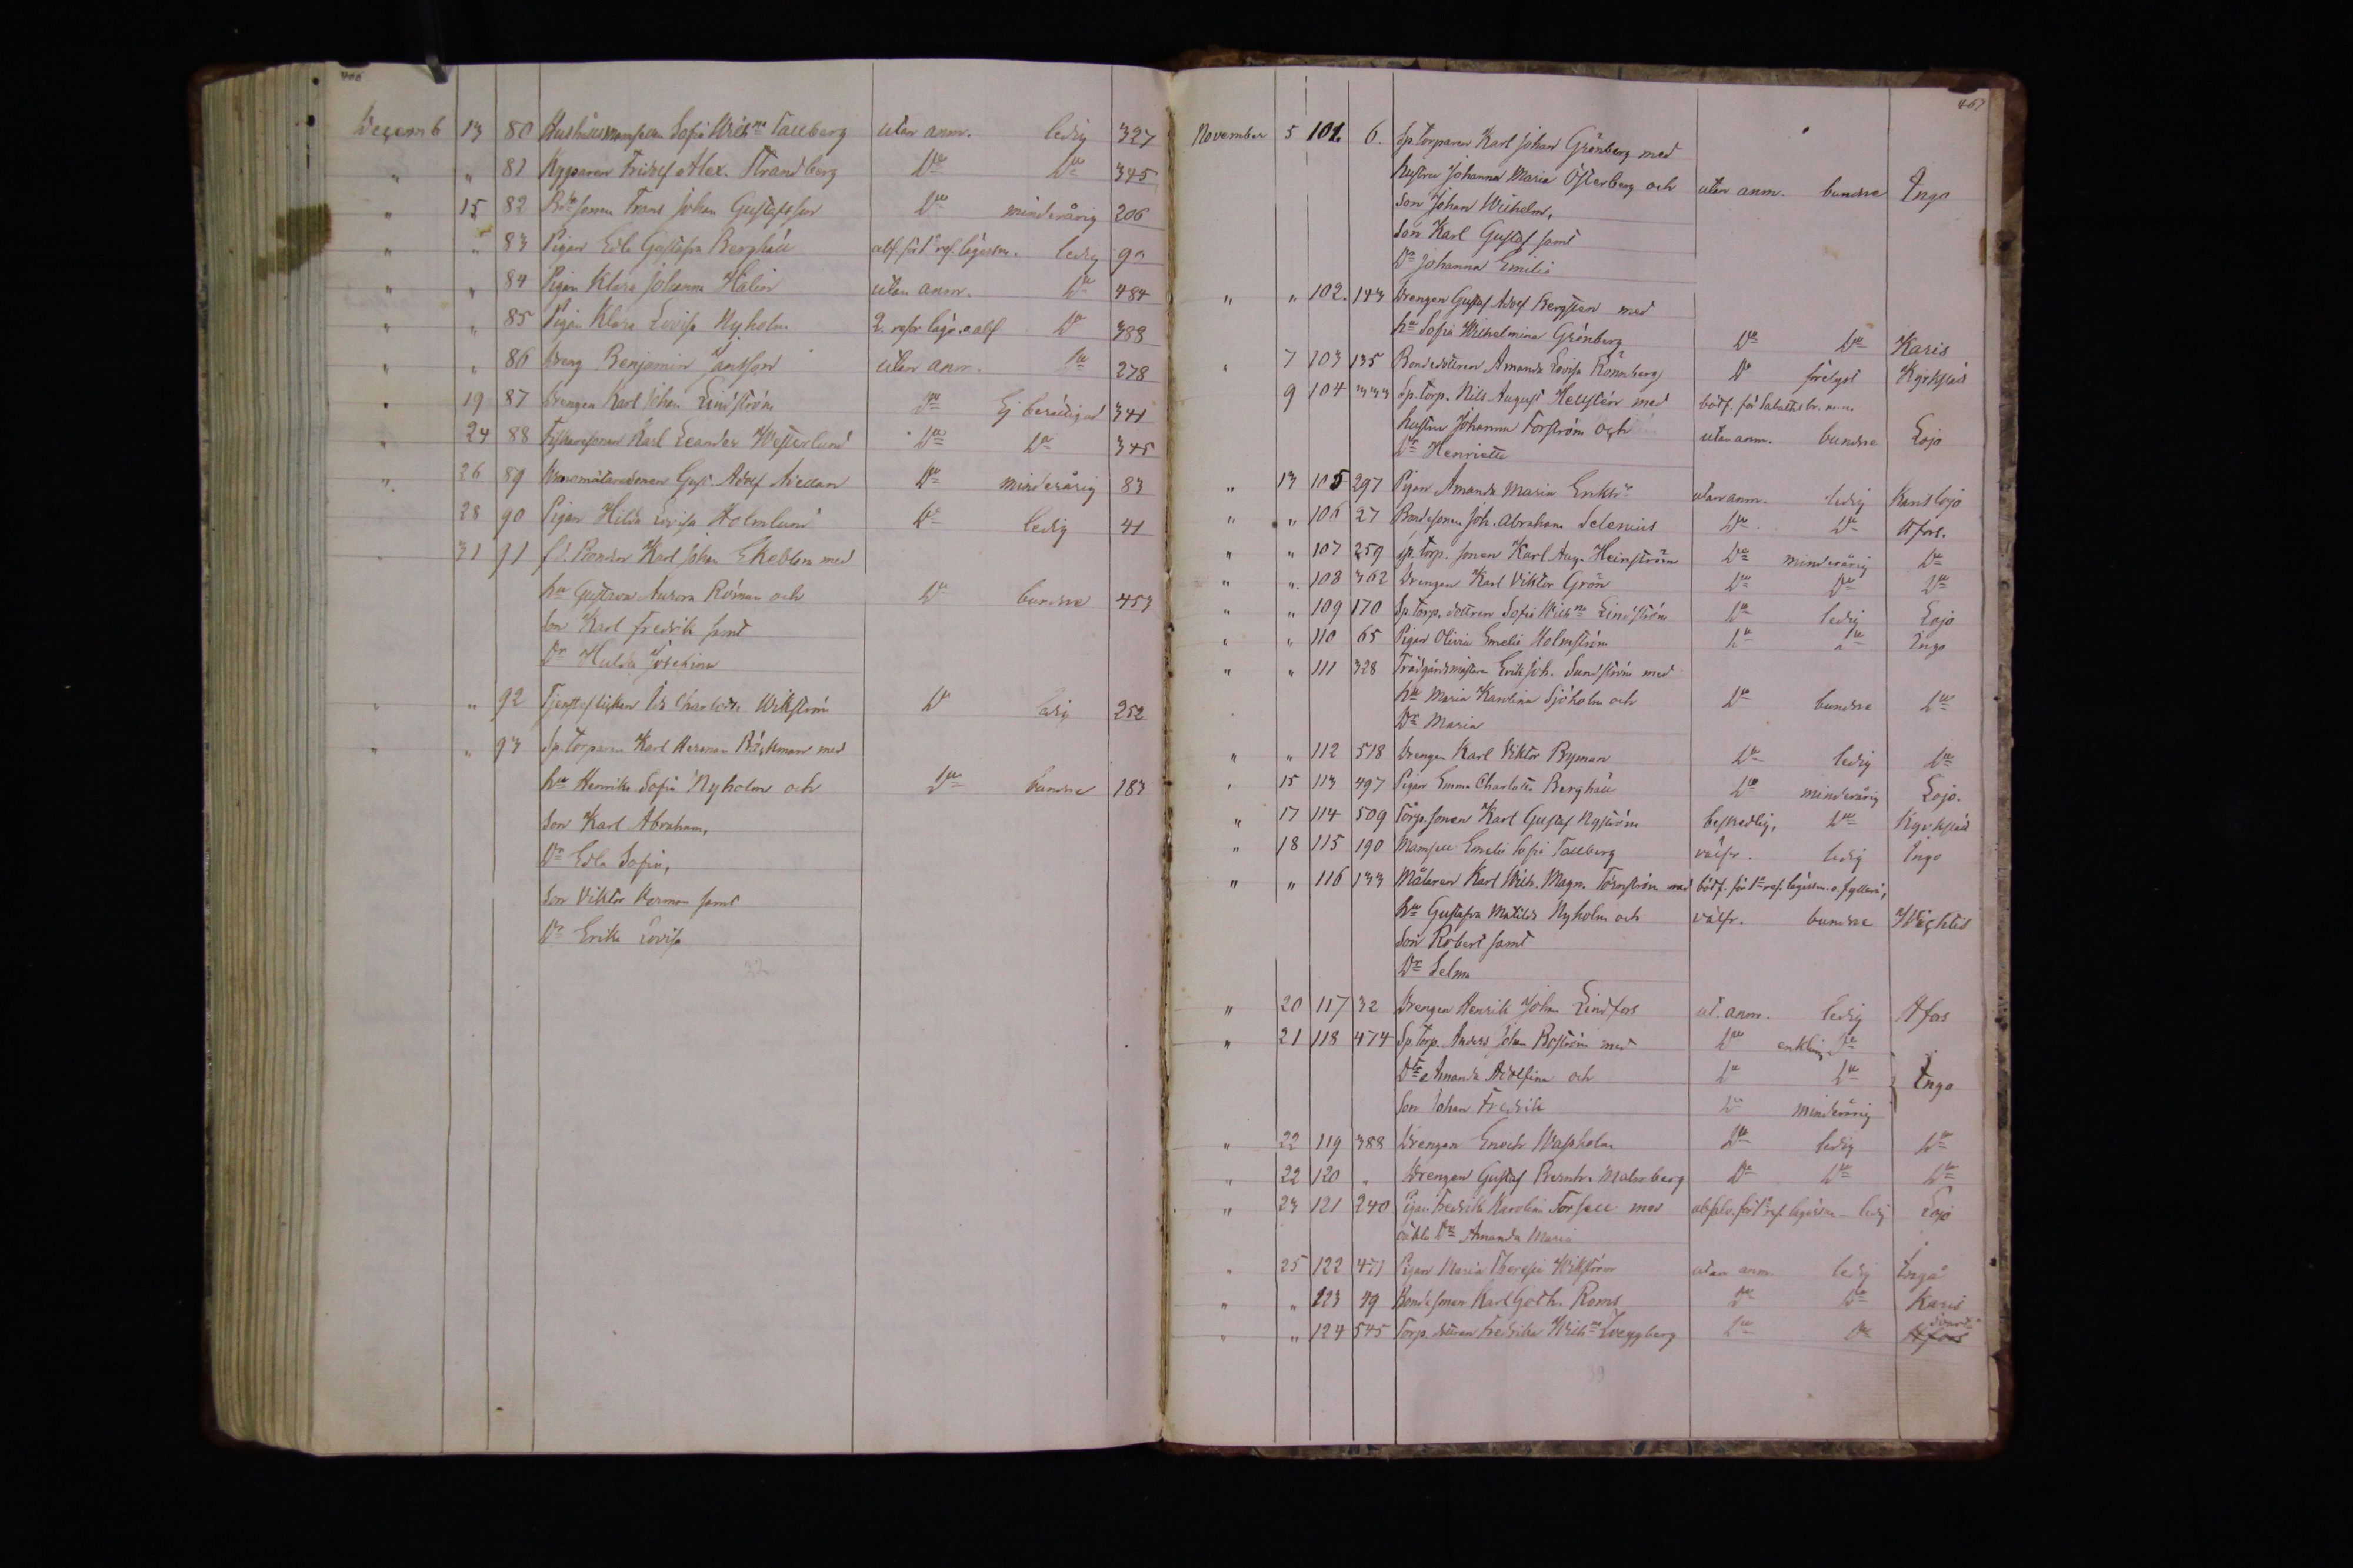 Decemb 13 80 Hushållsmamsellen Sofia Wilhna Tallberg utan anm. ledig 327
" " 81 Kypparen Fridolf Alex. Strandberg Do Do 345
" 15 82 Bdesonen Frans Johan Gustafsson Do minderårig 206
" " 83 Pigan Edla Gustafva Berghäll abs. för 1a ref. lägersm. ledig 90
" " 84 Pigan Klara Johanna Halin utan anm. Do 484
" " 85 Pigan Klara Lovisa Nyholm 2. Do 388
" " 86 Dreng Benjamin Jansson utan anm. Do 278
" 19 87 Drengen Karl Johan Lindström Do Ej berättigad 341
" 24 88 Karl Leander Westerlund Do Do 345
" 26 89 Gust. Adolf Do minderårig 83
28 90 Pigan Hilda Lovisa Holmlund Do ledig 41
31 91 fd. Bonden Karl Johan Ekeblom med
hu Gustava Aurora Róman och Do bundne 453
Son Karl Fredrik samt
Dr Hulda Josefina
" " 92 Charlotta Wikström Do ledig 252
" " 93 Sp. torparen Karl Herman Bäckman med
hu Henrika Sofia Nyholm och Do bundne 183
Son Karl Abraham,
Dr Edla Sofia,
Son Viktor Herman samt
Dr Erika Lovisa
32
467
November 5 101. 6. Sp. torparen Karl Johan Grönberg med
hustru Johanna Maria Österberg och utan anm. bundne Ingo
Son Johan Wilhelm,
Son Karl Gustaf samt
Dr Johanna Emilia
" " 102. 143 Drengen Gustaf Adolf Bergsten med
hu Sofia Wilhelmina Grönberg Do Do Karis
" 7 103 135 Bondedottren Amanda Lovisa Rönnberg Do förlyst Kyrkslätt
9 104 333 Sp. torp. Nils August Hellstén med bötf. för Sabathsbr. m.m.
hustru Johanna Forström och utan anm. bundne Lojo
Dr Henrietta
" 13 105 297 Pigan Amanda Maria Eriksdr utan anm. ledig Karislojo
" " 106 27 Bondesonen Joh. Abraham Selenius Do Do Hfors.
" " 107 259 Sp. torp. sonen Karl Aug. Heinström Do minderårig Do
" " 108 362 Drengen Karl Viktor Grön Do Do Do
" " 109 170 Sp. torp. dottren Sofia Wilhna Lindström Do ledig Lojo
" " 110 65 Pigan Olivia Emelia Holmström Do Do Ingo
" " 111 328 Trädgårdsmästaren Erik Joh. Sundström med
hu Maria Karolina Sjöholm och Do bundne Do
Dr Maria
" " 112 518 Drengen Karl Viktor Ryman Do ledig Do
" 15 113 497 Pigan Emma Charlotta Berghäll Do minderårig Lojo.
" 17 114 509 Torp. sonen Karl Gustaf Nyström beskedlig, Do Kyrkslätt
" 18 115 190 Mamsell Emelie Sofia Tallberg välfr. ledig Ingo
" " 116 133 Målaren Karl Wilh. Magn. Törnström med bötf. för 1a ref. lägersm. o fylleri,
hu Gustafva Matilda Nyholm och välfr. bundne Wichtis
Son Robert samt
Dr Selma
" 20 117 32 Drengen Henrik Johan Lindfors ut. anm. ledig Hfors
" 21 118 474 Sp. torp. Anders Johan Boström med Do enkling Do
Dr Amanda Adolfina och Do Do } Ingo
Son Johan Fredrik Do minderårig
" 22 119 388 Drengen Enoch Do ledig Do
" 22 120 " Drengen Gustaf Bernh. Malmberg Do Do Do
" 23 121 240 Pigan Fredrika Karolina Forsell med för 1a ref. lägersm. ledig Lojo
oäkta Dr Amanda Maria
" 25 122 471 Pigan Maria Theresia Wikström utan anm. ledig Ingå
" " 123 49 Bondesonen Karl Goth. Roms Do Do Karis
" " 124 545 Torp. dottren Fredrika Wilhna Do Do Svartå Hfors
39